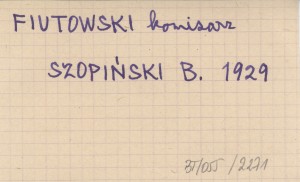 FIUTOWSKI komisarz
SZOPIŃSKI B. 1929
/2271